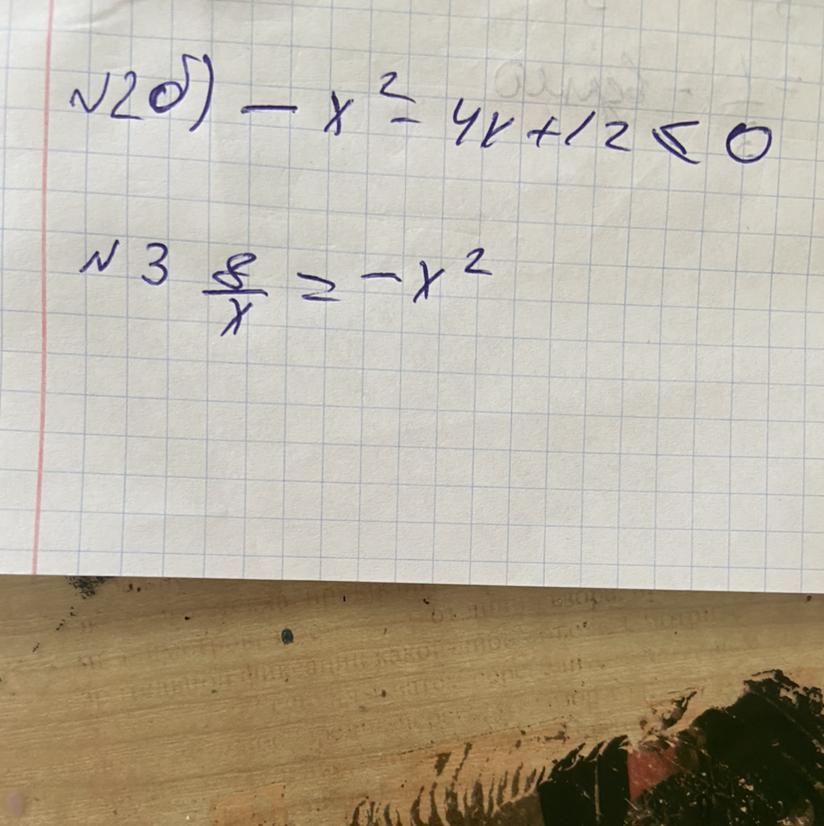 №2б) - x² - 4x + 12 < 0
№3 8/x = -x²